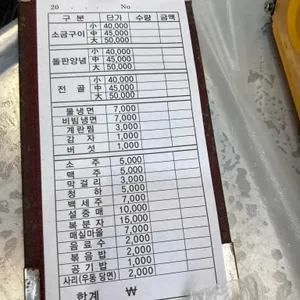 20 . . . No
구 분 단가 수량 금액
소금구이 小 40,000
中 45,000
大 50,000
돌판양념 小 40,000
中 45,000
大 50,000
전 골 小 40,000
中 45,000
大 50,000
물냉면 7,000
비빔냉면 7,000
계란찜 3,000
감 자 1,000
버 섯 1,000
소 주 5,000
맥 주 5,000
막걸리 3,000
청 하 5,000
백세주 7,000
설중매 10,000
복분자 15,000
매실마을 7,000
음료수 2,000
볶음밥 2,000
공기밥 1,000
사리(우동 당면) 2,000
합계 ₩